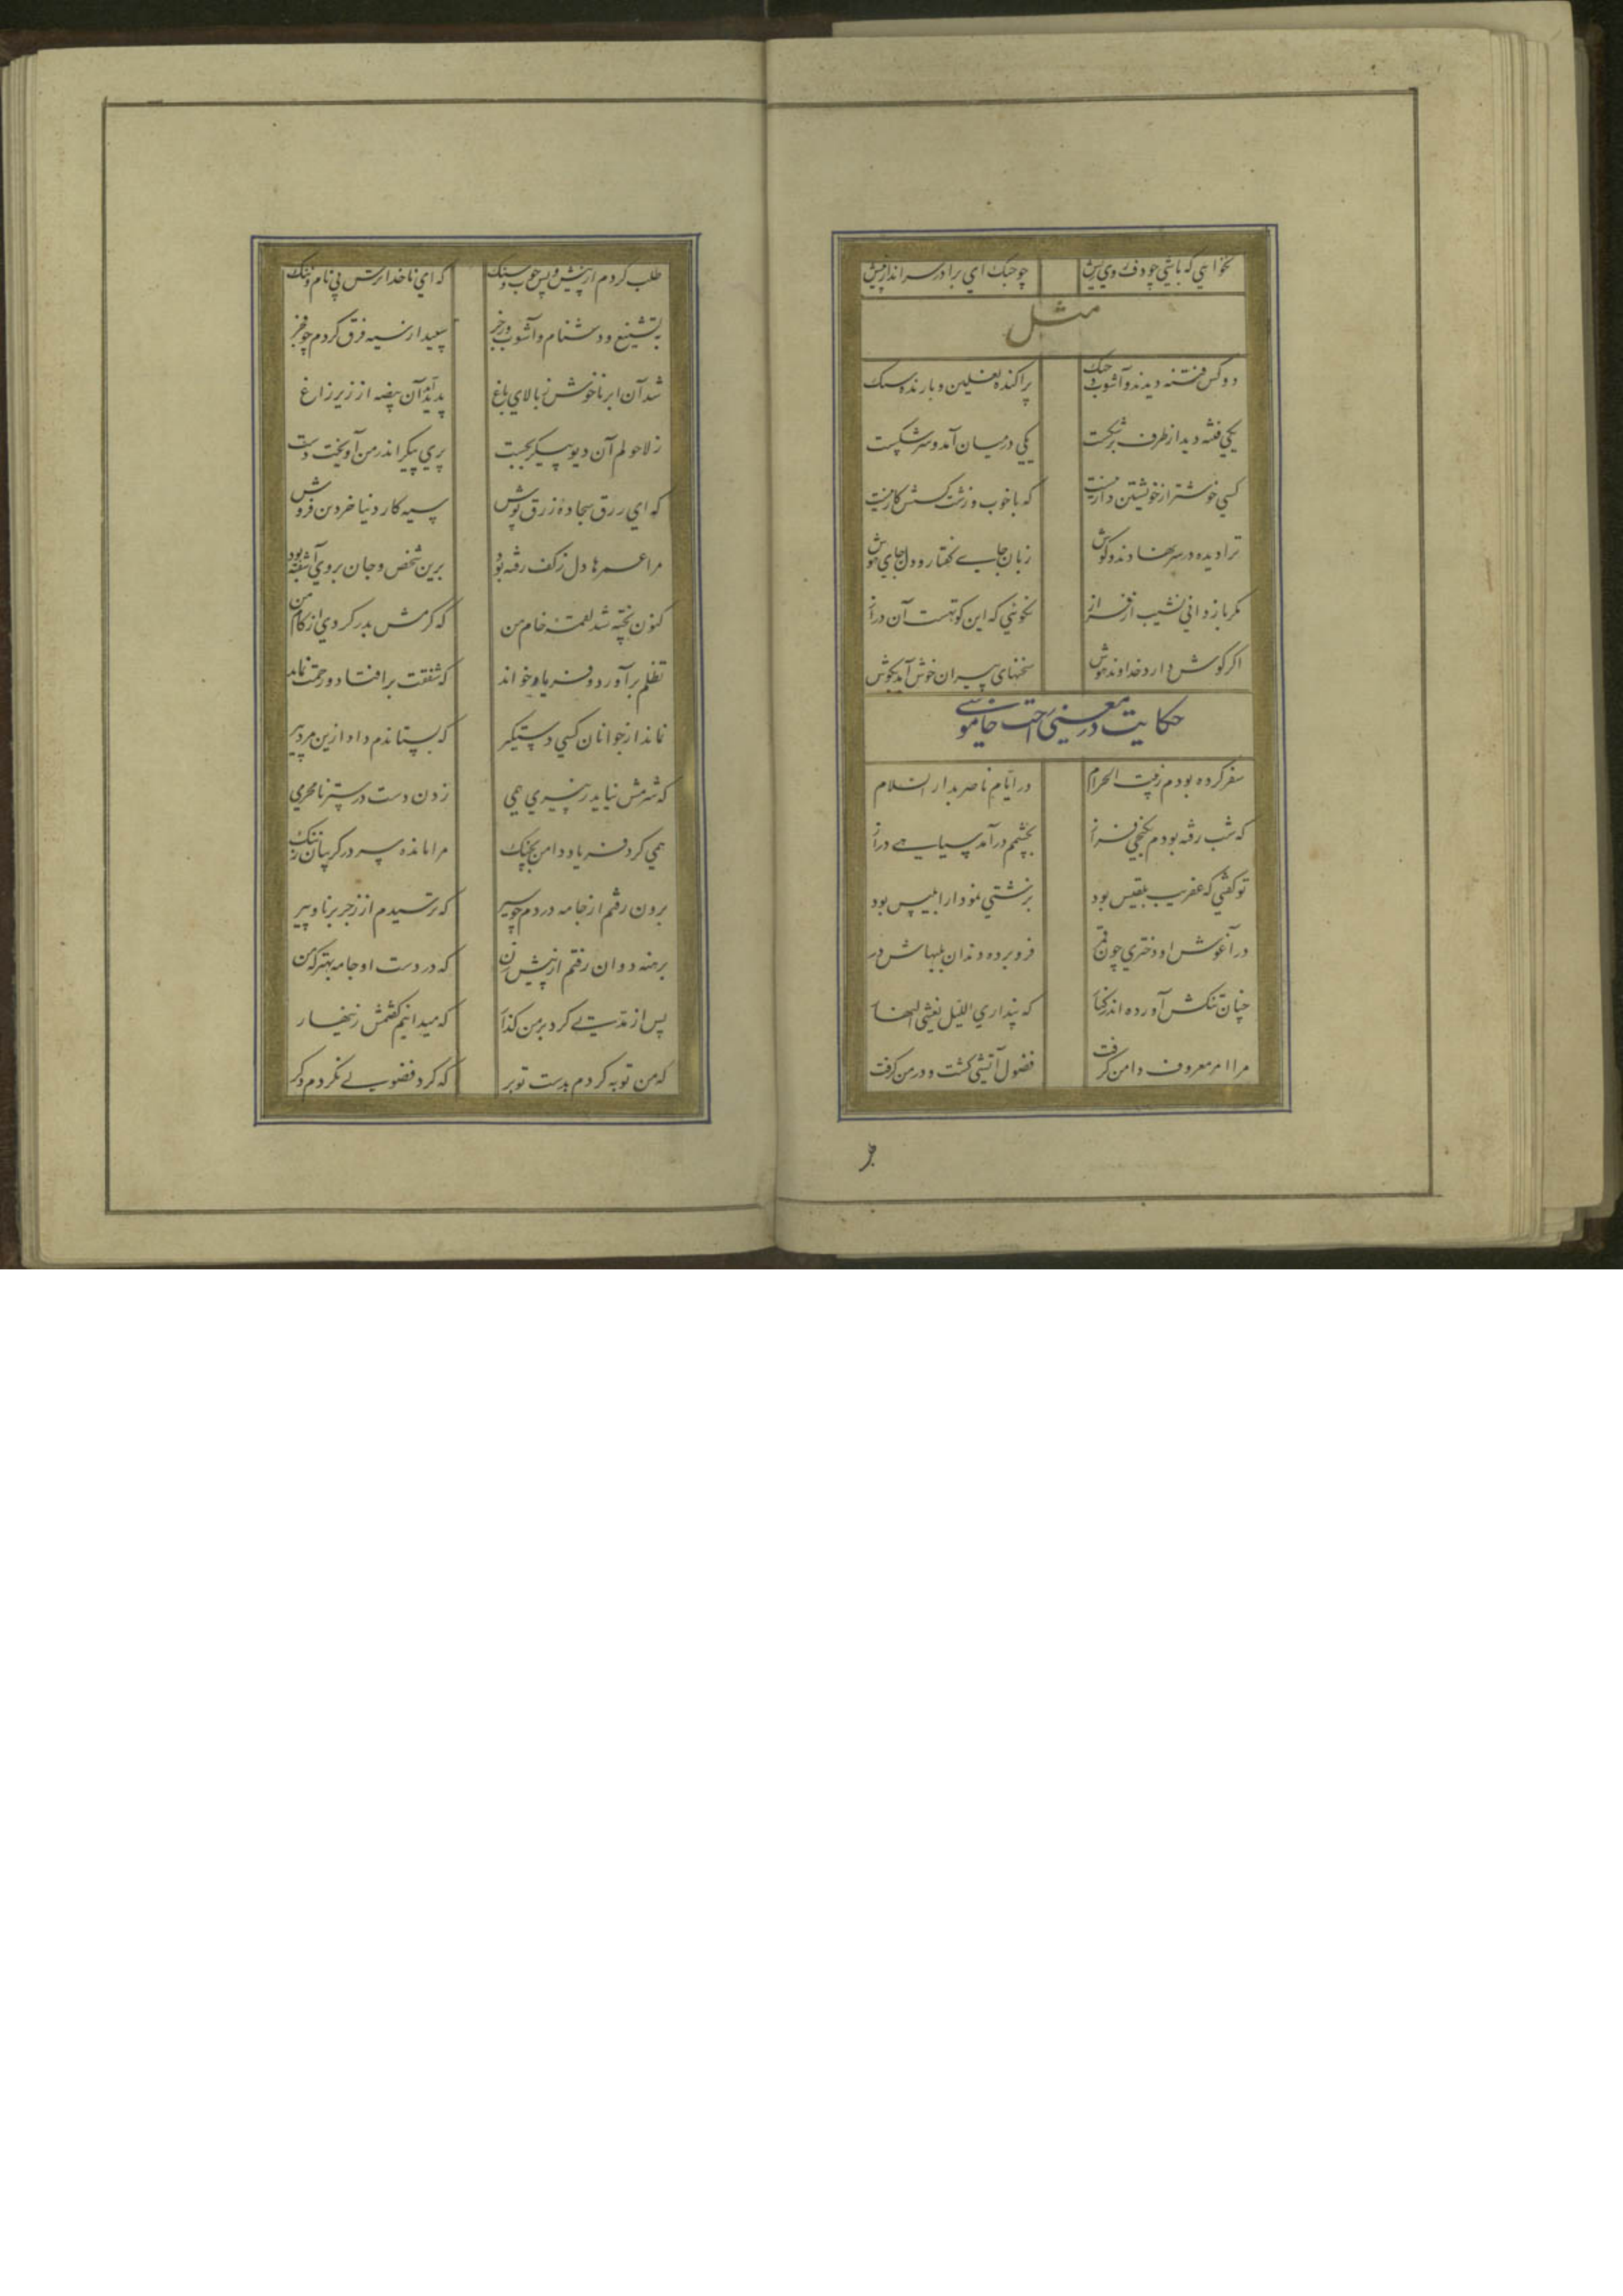 نخواهي که باشي چو دف روي ريش چو چنک اي برادر سر انداز پيش
مثل
دو کس فتنه ديدند و آشوب و جنک پراکنده نعلين و بارنده سنک
يکي فتنه ديد از طرف بر شکست يکي در ميان آمد و سر شکست
کسي خوشتر از خويشتن دار نيست که با خوب و زشت کسش کار نيست
ترا ديده در سر نهادند و کوش زبان جاي کفتار و دل جاي هوش
مکر باز داني نشيب از فراز نکوئي که اين کوتهست آن دراز
اکر کوش دارد خداوند هوش سخنهاي پيران خوش آيد بکوش
حکايت در معني راحت خاموشي
سفر کرده بودم ز بيت الحرام در ايام ناصر بدار السلام
که شب رفته بودم بکنجي فراز بچشم در آمد سياهي دراز
تو کفتي که عفريت بلقيس بود بزشتي نمودار ابليس بود
در آغوش او دختري چون قمر فرو برده دندان بلبهاش در
چنان تنکش آورده اندر کنار که پنداري الليل يغشي النهار
مرا امر معروف دامن کرفت فضول آتشي کشت و در من کرفت
طلب کردم از پيش و پس چوب و سنک که اي ناخدا ترس بي نام و ننک
بتشنيع و دشنام و آشوب و زجر سپيد از سيه فرق کردم چو فجر
شد آن ابر ناخوش ز بالاي باغ پديد آن بيضه از زير زاغ
ز لاحولم آن ديو پيکر بجست پري پيکر اندر من آويخت دست
که اي زرق سجاده زرق پوش سيه کار دنيا خر دين فروش
مرا عمرها دل ز کف رفته بود برين شخص و جان بروي آشفته بود
کنون پخته شد لقمه خام من که کرمش بدر کردي از کام من
تظلم بر آورد و فرياد خواند که شفقت بر افتاد و رحمت نماند
نماند از جوانان کسي دستکير که بستاندم داد ازين مرد پير
که شرمش نيايد ز پيري همي زدن دست در ستر نامحرمي
همي کرد فرياد و دامن بچنک مرا مانده سر در کريبان ز ننک
برون رفتم از جامه در دم چو سير که ترسيدم از زجر برنا و پير
برهنه دوان رفتم از پيش زن که در دست او جامه بهتر که من
پس از مدتي کرد بر من کذار که ميدانيم کفتمش زينهار
که من توبه کردم بدست تو بر که کرد فضولي نکردم دکر